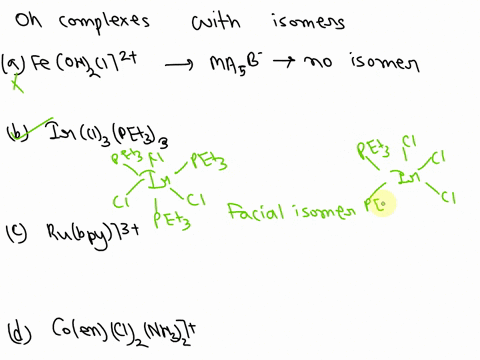 Oh complexes with isomers
(a) Fe(OH)2Cl]2+ → MA5B- → no isomer
x
(b) Irn(Cl)3(PEt3)3
PEt3 Cl PEt3
Irn
Cl Cl
PEt3
Facial isomer
PEt3 Cl Cl
Irn
PE Cl
(c) Ru(bpy)]3+
(d) Co(en)(Cl)2(NH3)2]+